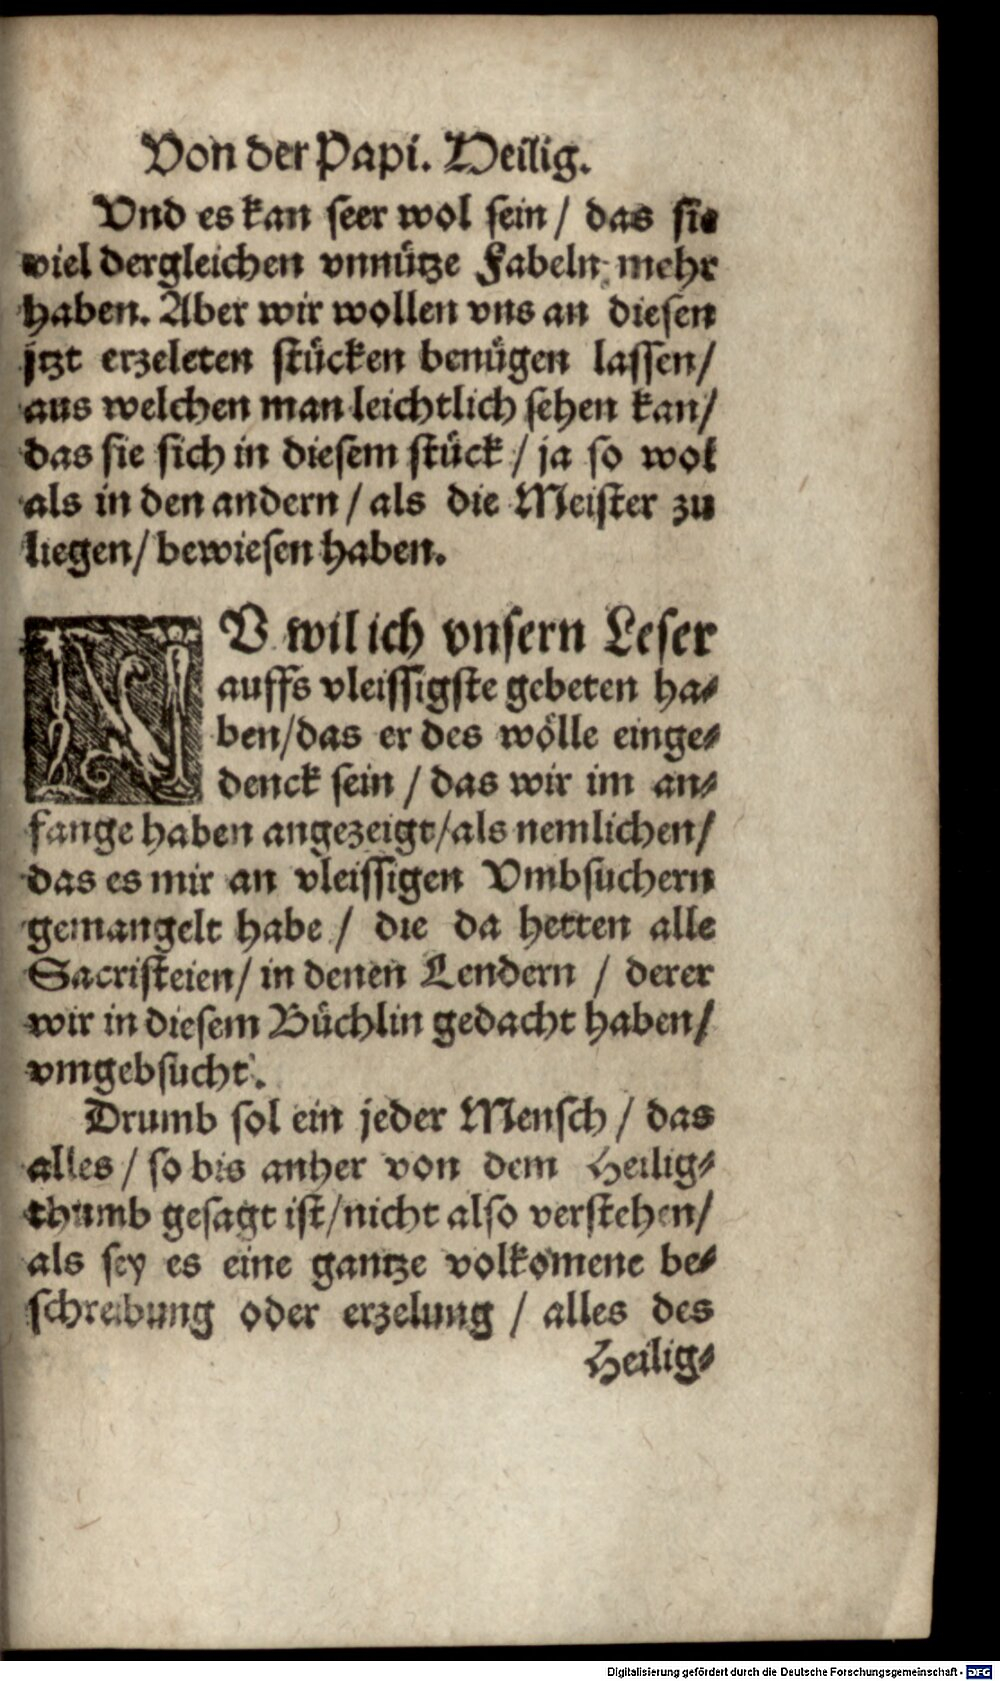 Von der Papi. Heilig.
Vnd es kan seer wol sein / das sie
viel dergleichen vnnütze Fabeln mehr
haben. Aber wir wollen vns an diesen
jtzt erzeleten stücken benügen lassen/
aus welchen man leichtlich sehen kan/
das sie sich in diesem stück / ja so wol
als in den andern / als die Meister zu
liegen/ bewiesen haben.
NV wil ich vnsern Leser
auffs vleissigste gebeten ha-
ben/das er des wölle einge-
denck sein / das wir im an-
fange haben angezeigt/als nemlichen/
das es mir an vleissigen Vmbsuchern
gemangelt habe / die da hetten alle
Sacristeien/ in denen Lendern / derer
wir in diesem Büchlin gedacht haben/
vmgebsucht.
Drumb sol ein jeder Mensch / das
alles / so bis anher von dem Heilig-
thumb gesagt ist/nicht also verstehen/
als sey es eine gantze volkomene be-
schreibung oder erzelung / alles des
Heilig-
Digitalisierung gefördert durch die Deutsche Forschungsgemeinschaft - DFG